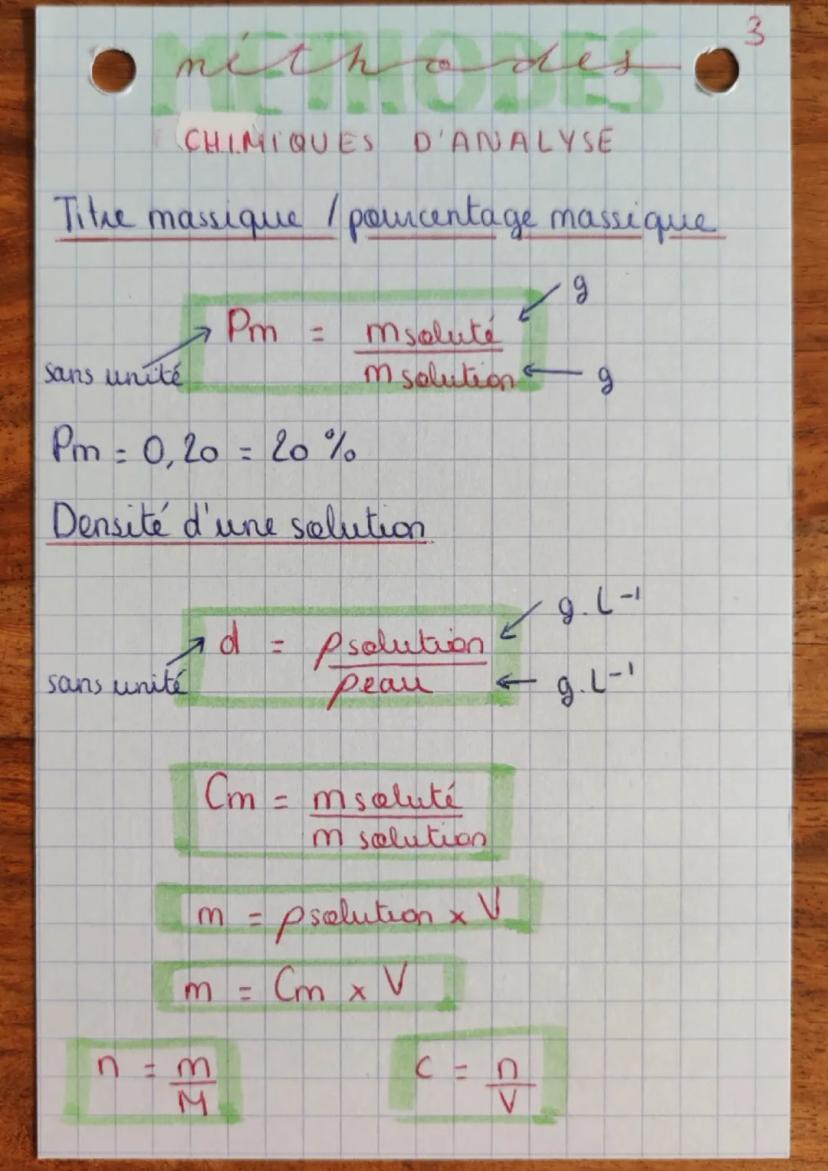 3
METHODES
méthodes
CHIMIQUES D'ANALYSE
Titre massique / pourcentage massique
g
Pm = m soluté / m solution
sans unité
g
Pm = 0,20 = 20 %
Densité d'une solution
g.L⁻¹
d = ρ solution / ρ eau
sans unité
g.L⁻¹
Cm = m soluté / m solution
m = ρ solution x V
m = Cm x V
n = m / M
c = n / V